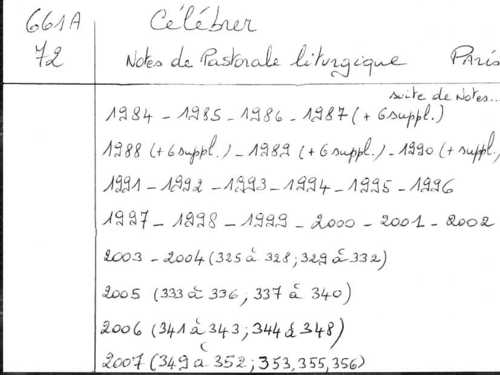 661A Célébrer
72 Notes de Pastorale liturgique Paris
suite de Notes...
1984 - 1985 - 1986 - 1987 (+ 6 suppl.)
1988 (+ 6 suppl.) - 1989 (+ 6 suppl.) - 1990 (+ suppl.)
1991 - 1992 - 1993 - 1994 - 1995 - 1996
1997 - 1998 - 1999 - 2000 - 2001 - 2002
2003 - 2004 (325 à 328 ; 329 à 332)
2005 (333 à 336 ; 337 à 340)
2006 (341 à 343 ; 344 à 348)
2007 (349 à 352 ; 353, 355, 356)